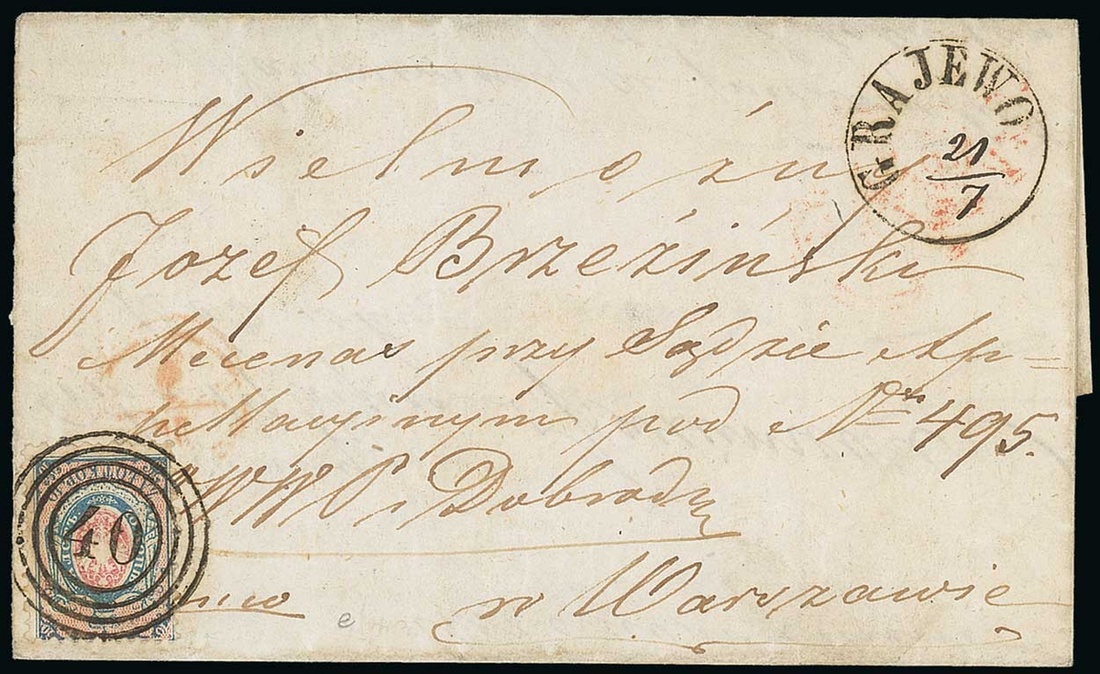 GRAJEWO
21/7
Wielmożny
Jozef Brzeziński
Mecenas przy Sądzie Ap=
pellacyinym pod No 495.
WWP i Dobrodz
w Warszawie
40
e